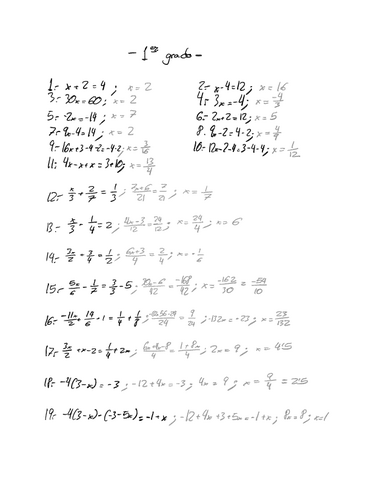 - 1er grado -
1.- x + 2 = 4 ; x = 2 2.- x - 4 = 12 ; x = 16
3.- 30x = 60 ; x = 2 4.- 3x = -4 ; x = -4/3
5.- -2x = -14 ; x = 7 6.- 2x + 2 = 12 ; x = 5
7.- 9x - 4 = 14 ; x = 2 8.- 9x - 2 = 4 - 2 ; x = 4/9
9.- 16x + 3 - 4 = -4 · 2 ; x = 3/16 10.- 12x - 2 - 4 = 3 - 4 - 4 ; x = 1/12
11.- 4x - x + x = 3 + 10 ; x = 13/4
12.- x/3 + 2/7 = 1/3 ; 7x+6/21 = 7/21 ; x = 1/7
13.- x/3 + 1/4 = 2 ; 4x-3/12 = 24/12 ; x = 24/4 ; x = 6
14.- 3/4 = 1/2 ; 6x+3/4 = 2/4 ; x = -1/6
15.- 5x/6 - 1/7 = 3/3 - 5 ; = -168 ; x = -162/30 = -54/10
16.- -11x/2 + 14/6 - 1 = 1/4 + 1/8 ; = 9/24 ; -132x = -23 ; x = 23/132
17.- 3x/2 + x - 2 = 1/4 + 2x ; = 1+8x/4 ; 2x = 9 ; x = 4'5
18.- -4(3-x) = -3 ; -12 + 4x = -3 ; 4x = 9 ; x = 9/4 = 2'25
19.- -4(3-x) - (-3-5x) = -1 + x ; -12 + 4x + 3 + 5x = -1 + x ; 8x = 8 ; x = 1